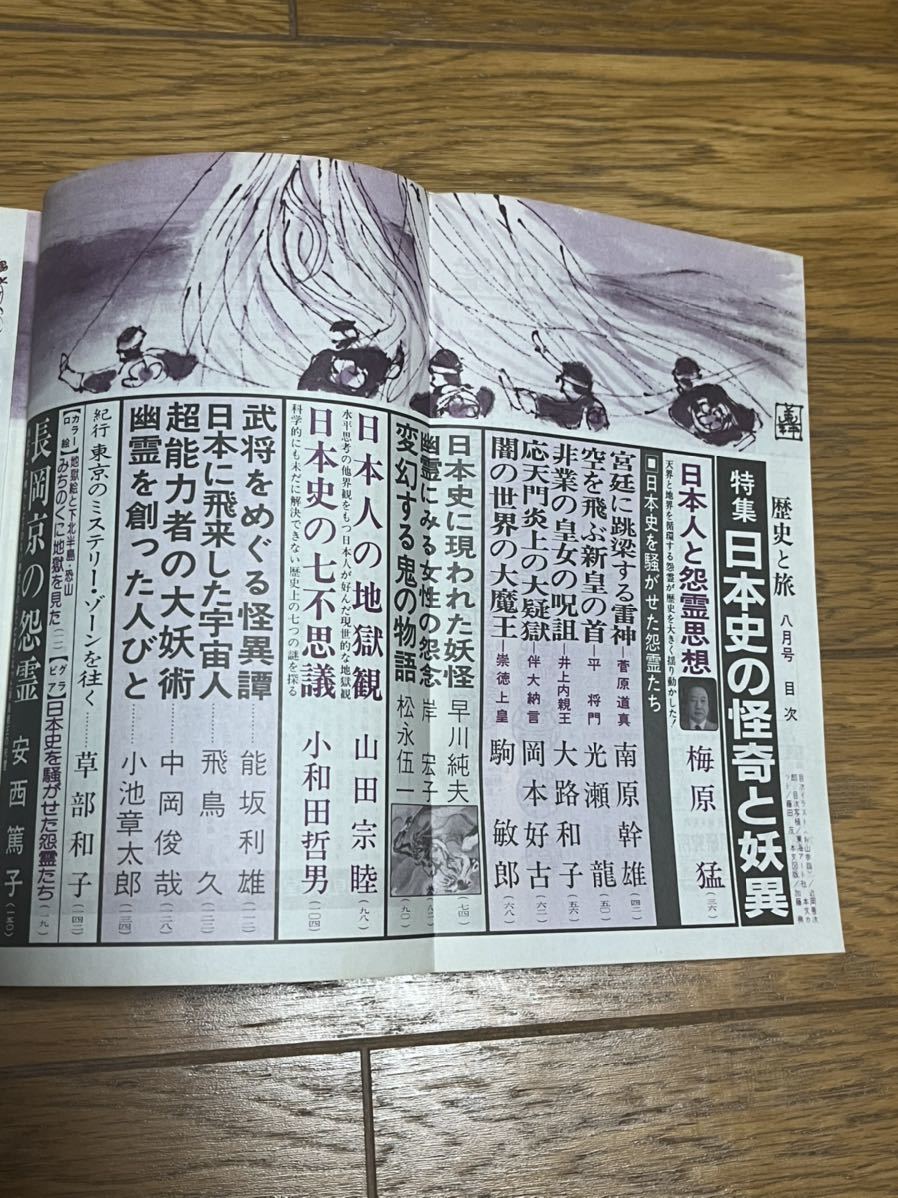 歴史と旅 八月号 目次
特集 日本史の怪奇と妖異
日本人と怨霊思想 梅原猛(三六)
天界と地界を循環する怨霊が歴史を大きく揺り動かした!
■日本史を騒がせた怨霊たち
宮廷に跳梁する雷神─菅原道真 南原幹雄(四二)
空を飛ぶ新皇の首─平将門 光瀬龍(五〇)
非業の皇女の呪詛─井上内親王 大路和子(五六)
応天門炎上の大疑獄─伴大納言 岡本好古(六二)
闇の世界の大魔王─崇徳上皇 駒敏郎(六八)
日本史に現われた妖怪 早川純夫(七四)
幽霊にみる女性の怨念 岸宏子(八二)
変幻する鬼の物語 松永伍一(九〇)
日本人の地獄観 山田宗睦(九八)
水平思考の他界観をもつ日本人が好んだ現世的な地獄観
日本史の七不思議 小和田哲男(一〇四)
科学的にも未だに解決できない歴史上の七つの謎を探る
武将をめぐる怪異譚……能坂利雄
日本に飛来した宇宙人……飛鳥久
超能力者の大妖術……中岡俊哉(一二八)
幽霊を創った人びと……小池章太郎(一三四)
紀行 東京のミステリー・ゾーンを往く……草部和子(一四二)
【カラー口絵】地獄絵と下北半島・恐山 みちのくに地獄を見た
【グラビア】日本史を騒がせた怨霊たち
長岡京の怨霊 安西篤子(一五〇)